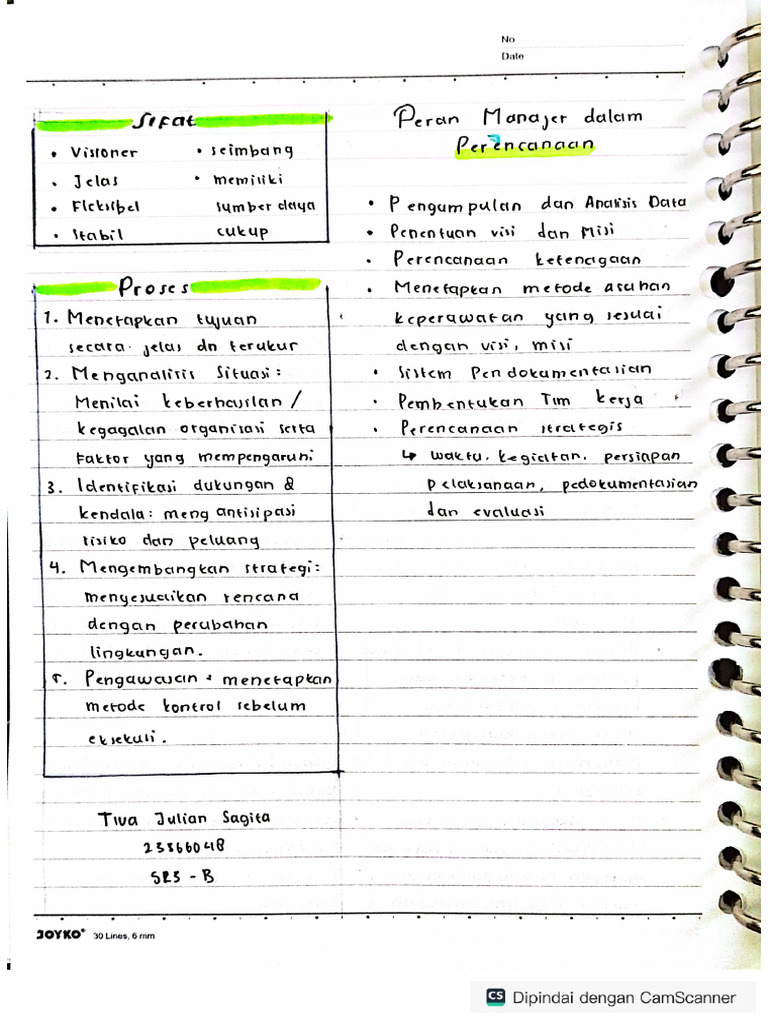 No
Date
Sifat
• Visioner
• Jelas
• Fleksibel
• Stabil
• seimbang
• memiliki
sumber daya
cukup
Proses
1. Menetapkan tujuan
secara jelas dn terukur
2. Menganalisis Situasi:
Menilai keberhasilan /
kegagalan organisasi serta
Faktor yang mempengaruhi
3. Identifikasi dukungan &
kendala: mengantisipasi
risiko dan peluang
4. Mengembangkan strategi:
menyesuaikan rencana
dengan perubahan
lingkungan.
5. Pengawasan: menetapkan
metode kontrol sebelum
eksekusi.
Tiva Julian Sagita
23366048
SR3 - B
Peran Manajer dalam
Perencanaan
• Pengumpulan dan Analisis Data
• Penentuan visi dan Misi
• Perencanaan ketenagaan
• Menetapkan metode asuhan
keperawatan yang sesuai
dengan visi, misi
• Sistem Pendokumentasian
• Pembentukan Tim kerja
• Perencanaan strategis
↳ waktu, kegiatan, persiapan
pelaksanaan, pedokumentasian
dan evaluasi
JOYKO® 30 Lines, 6 mm
CS Dipindai dengan CamScanner